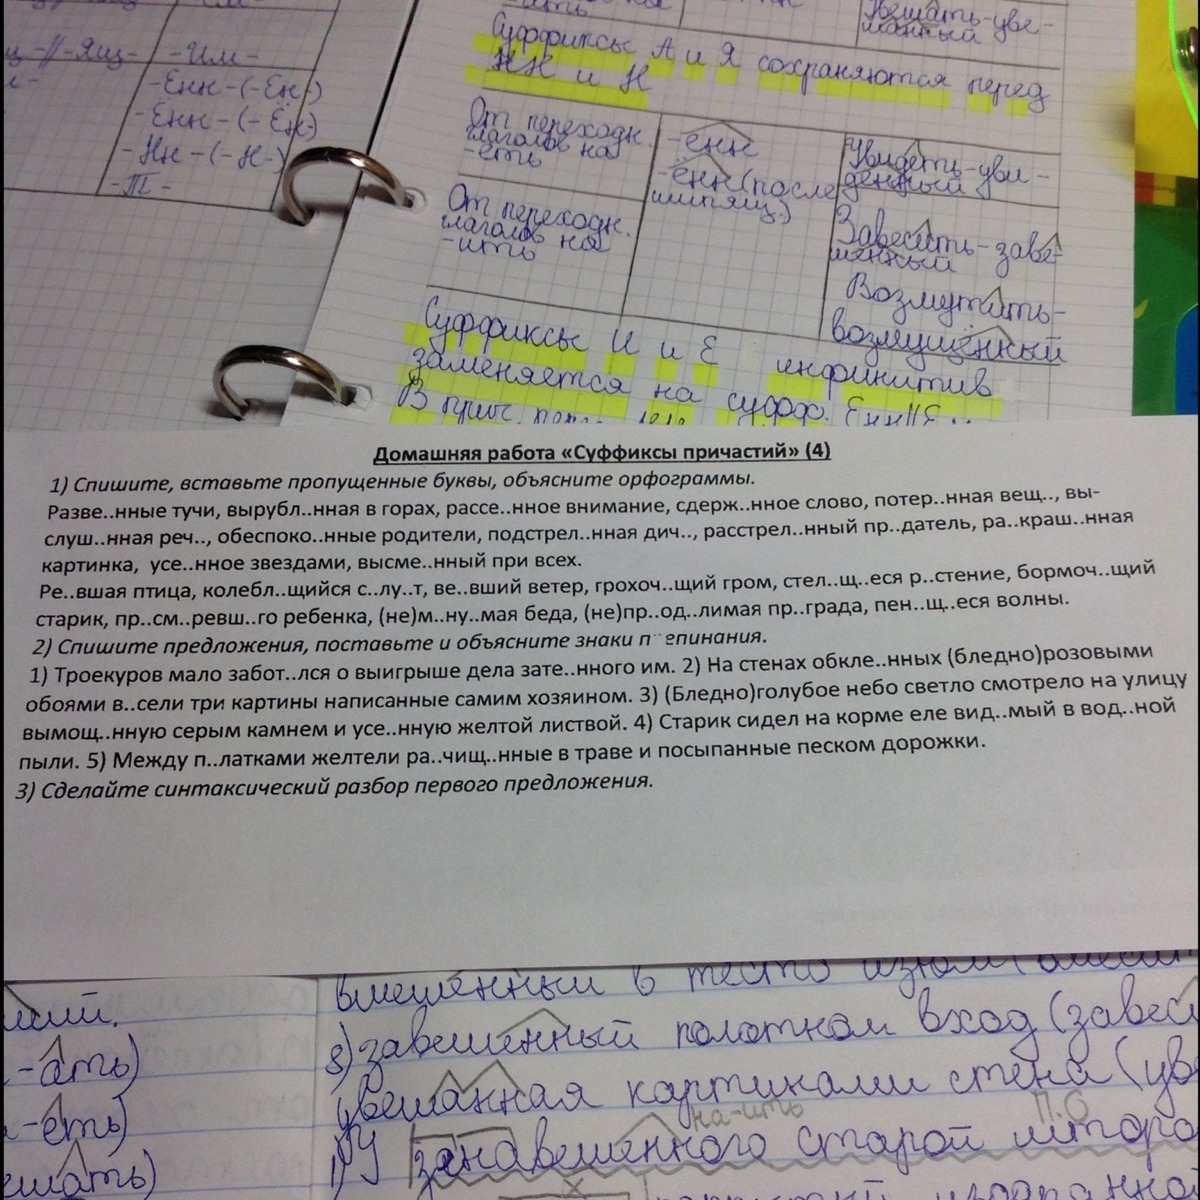 -ать
Увешать-уве-
шанный
Суффиксы А и Я сохраняются перед
НН и Н
-Ящ-
-Им-
-Енн-(-Ен-)
-Ённ-(-Ён-)
-Нн-(-Н-)
-Т-
От переходн.
глаголов на
-еть
-енн
-ённ(после
шипящ.)
Увидеть-уви-
денный
От переходн.
глаголов на
-ить
Завесить-заве-
шенный
Возмутить-
возмущённый
Суффиксы И и Е инфинитив
заменяется на суфф. Енн//Е
В прич.
Домашняя работа «Суффиксы причастий» (4)
1) Спишите, вставьте пропущенные буквы, объясните орфограммы.
Разве..нные тучи, вырубл..нная в горах, рассе..нное внимание, сдерж..нное слово, потер..нная вещ.., вы-
слуш..нная реч.., обеспоко..нные родители, подстрел..нная дич.., расстрел..нный пр..датель, ра..краш..нная
картинка, усе..нное звездами, высме..нный при всех.
Ре..вшая птица, колебл..щийся с..лу..т, ве..вший ветер, грохоч..щий гром, стел..щ..еся р..стение, бормоч..щий
старик, пр..см..ревш..го ребенка, (не)м..ну..мая беда, (не)пр..од..лимая пр..града, пен..щ..еся волны.
2) Спишите предложения, поставьте и объясните знаки п..епинания.
1) Троекуров мало забот..лся о выигрыше дела зате..нного им. 2) На стенах обкле..нных (бледно)розовыми
обоями в..сели три картины написанные самим хозяином. 3) (Бледно)голубое небо светло смотрело на улицу
вымощ..нную серым камнем и усе..нную желтой листвой. 4) Старик сидел на корме еле вид..мый в вод..ной
пыли. 5) Между п..латками желтели ра..чищ..нные в траве и посыпанные песком дорожки.
3) Сделайте синтаксический разбор первого предложения.
вмешенный в тесто изюм
8) завешенный полотном вход (завес
увешанная картинами стена (ув
на-ить П.О
занавешенного старой шторо
-ать)
-еть)
ешать)